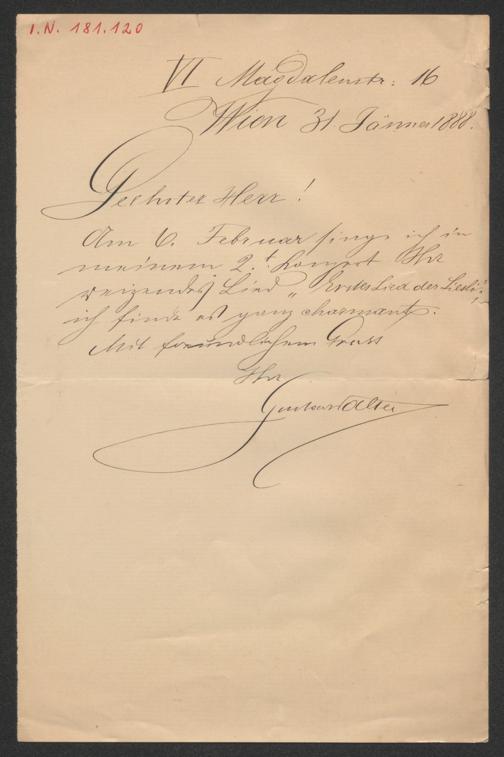 I.N. 181.120
VI Magdalenstr: 16
Wien 31. Jänner 1888.
Geehrter Herr!
Am 6. Februar singe ich in
meinem 2.t Konzert Ihr
reizendes Lied „Erstes Lied der Liebe“,
ich finde es ganz charmant.
Mit freundlichem Gruss
Ihr
Gustav Walter